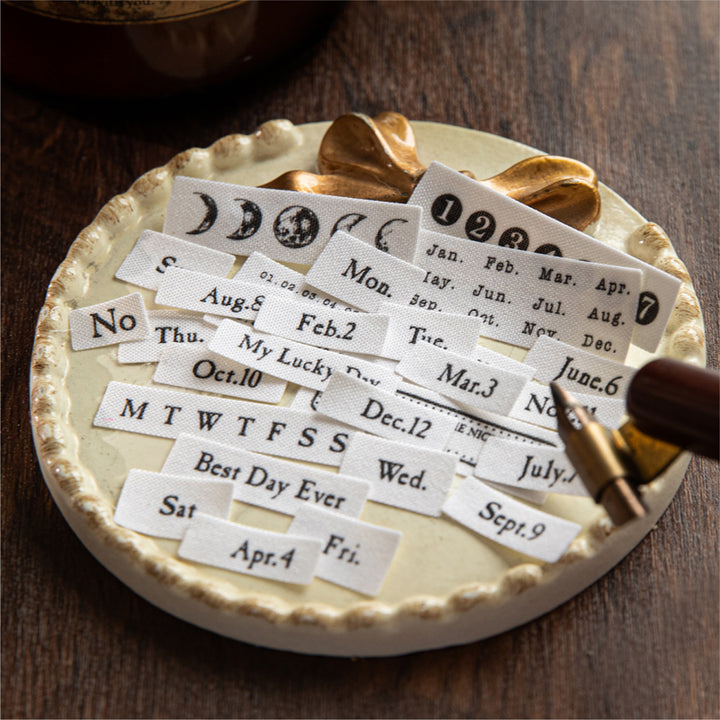 1 2 3 7
Jan. Feb. Mar. Apr.
Jun. Jul. Aug.
Oct. Nov. Dec.
Mon.
01.02.03.04
Aug.8
No
Feb.2
Tue.
Thu.
My Lucky Day
June.6
Oct.10
Mar.3
Dec.12
M T W T F S S
Wed.
July.7
Best Day Ever
Sat
Sept.9
Apr.4
Fri.